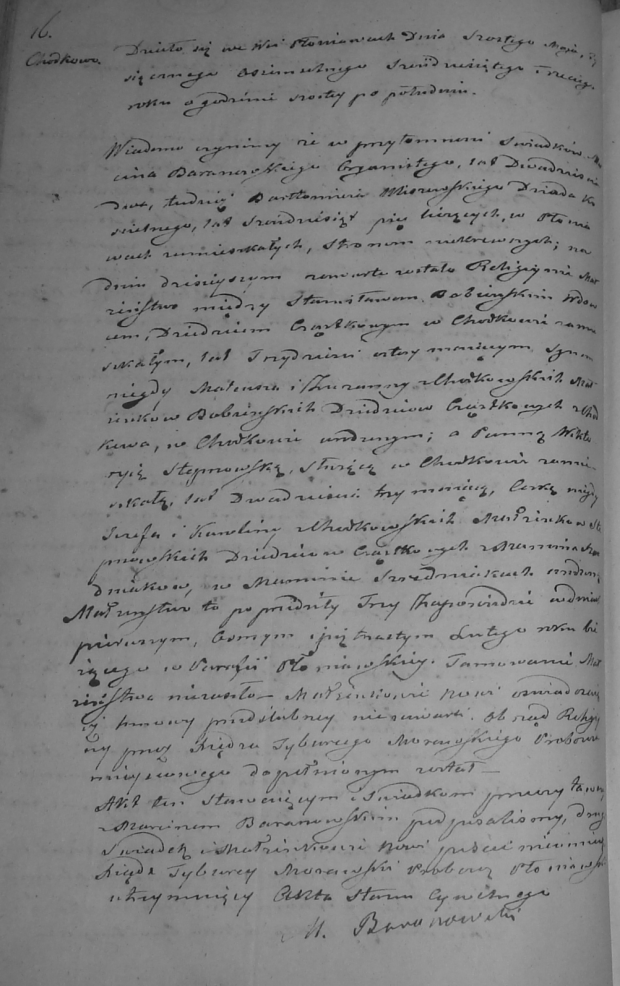 16.
Chodkowo.
Działo się we Wsi Płoniawach Dnia Szóstego Maja, ty
siącznego Ośmsetnego Trzeciego
roku o godzinie szóstey po południu.
Wiadomo czynimy że w przytomności Świadków, Ma
cina Baranowskiego Organistego, lat Dwadzieścia
Dwa, tudzież Bartłomieja Dziada Ko
ścielnego, lat pięć liczących, w Płonia
wach zamieszkałych, Stronom niekrewnych; na
dniu dzisieyszym zawarte zostało Religiynie Mał
żeństwo między Stanisławem Bobińskim Wdow
cem, Dziedzicem Cząstkowym w Chodkowie zamie
szkałym, lat Trzydzieści cztery maiącym Synem
niegdy Mateusza i Zuzanny z Chodkowskich Mał
żonków Bobińskich Dziedziców Cząstkowych z Chod
kowa, w Chodkowie urodzonym; a Panną Wikto
ryią Stępnowską, służącą w Chodkowie zamie
szkałą, lat Dwadzieścia trzy maiącą, Córką niegdy
Jozefa i Karoliny z Chodkowskich Małżonków Stę
pnowskich Dziedziców Cząstkowych z Mamina Sze
dniaków, w Maminie urodzoną
Małżeństwo to poprzedziły Trzy Zapowiedzie w dniach
pierwszym, ósmym i piętnastym Lutego roku bie
żącego w Parafii Płoniawskiey. Tamowanie Mał
żeństwa niezaszło. Małżonkowie nowi oświadczaią
iż umowy przedślubney niezawarli. Obrząd Religiy
ny przez Xiędza Tyburcego Morawskiego Proboszcza
mieyscowego dopełnionym został —
Akt ten Stawaiącym i Świadkom przeczytawszy
z Marcinem Baranowskim podpisaliśmy, drugi
Świadek i Małżonkowie nowi pisać nieumieią
Xiądz Tyburcy Morawski Proboszcz Płoniawski
utrzymuiący Akta Stanu Cywilnego
M. Baranowski